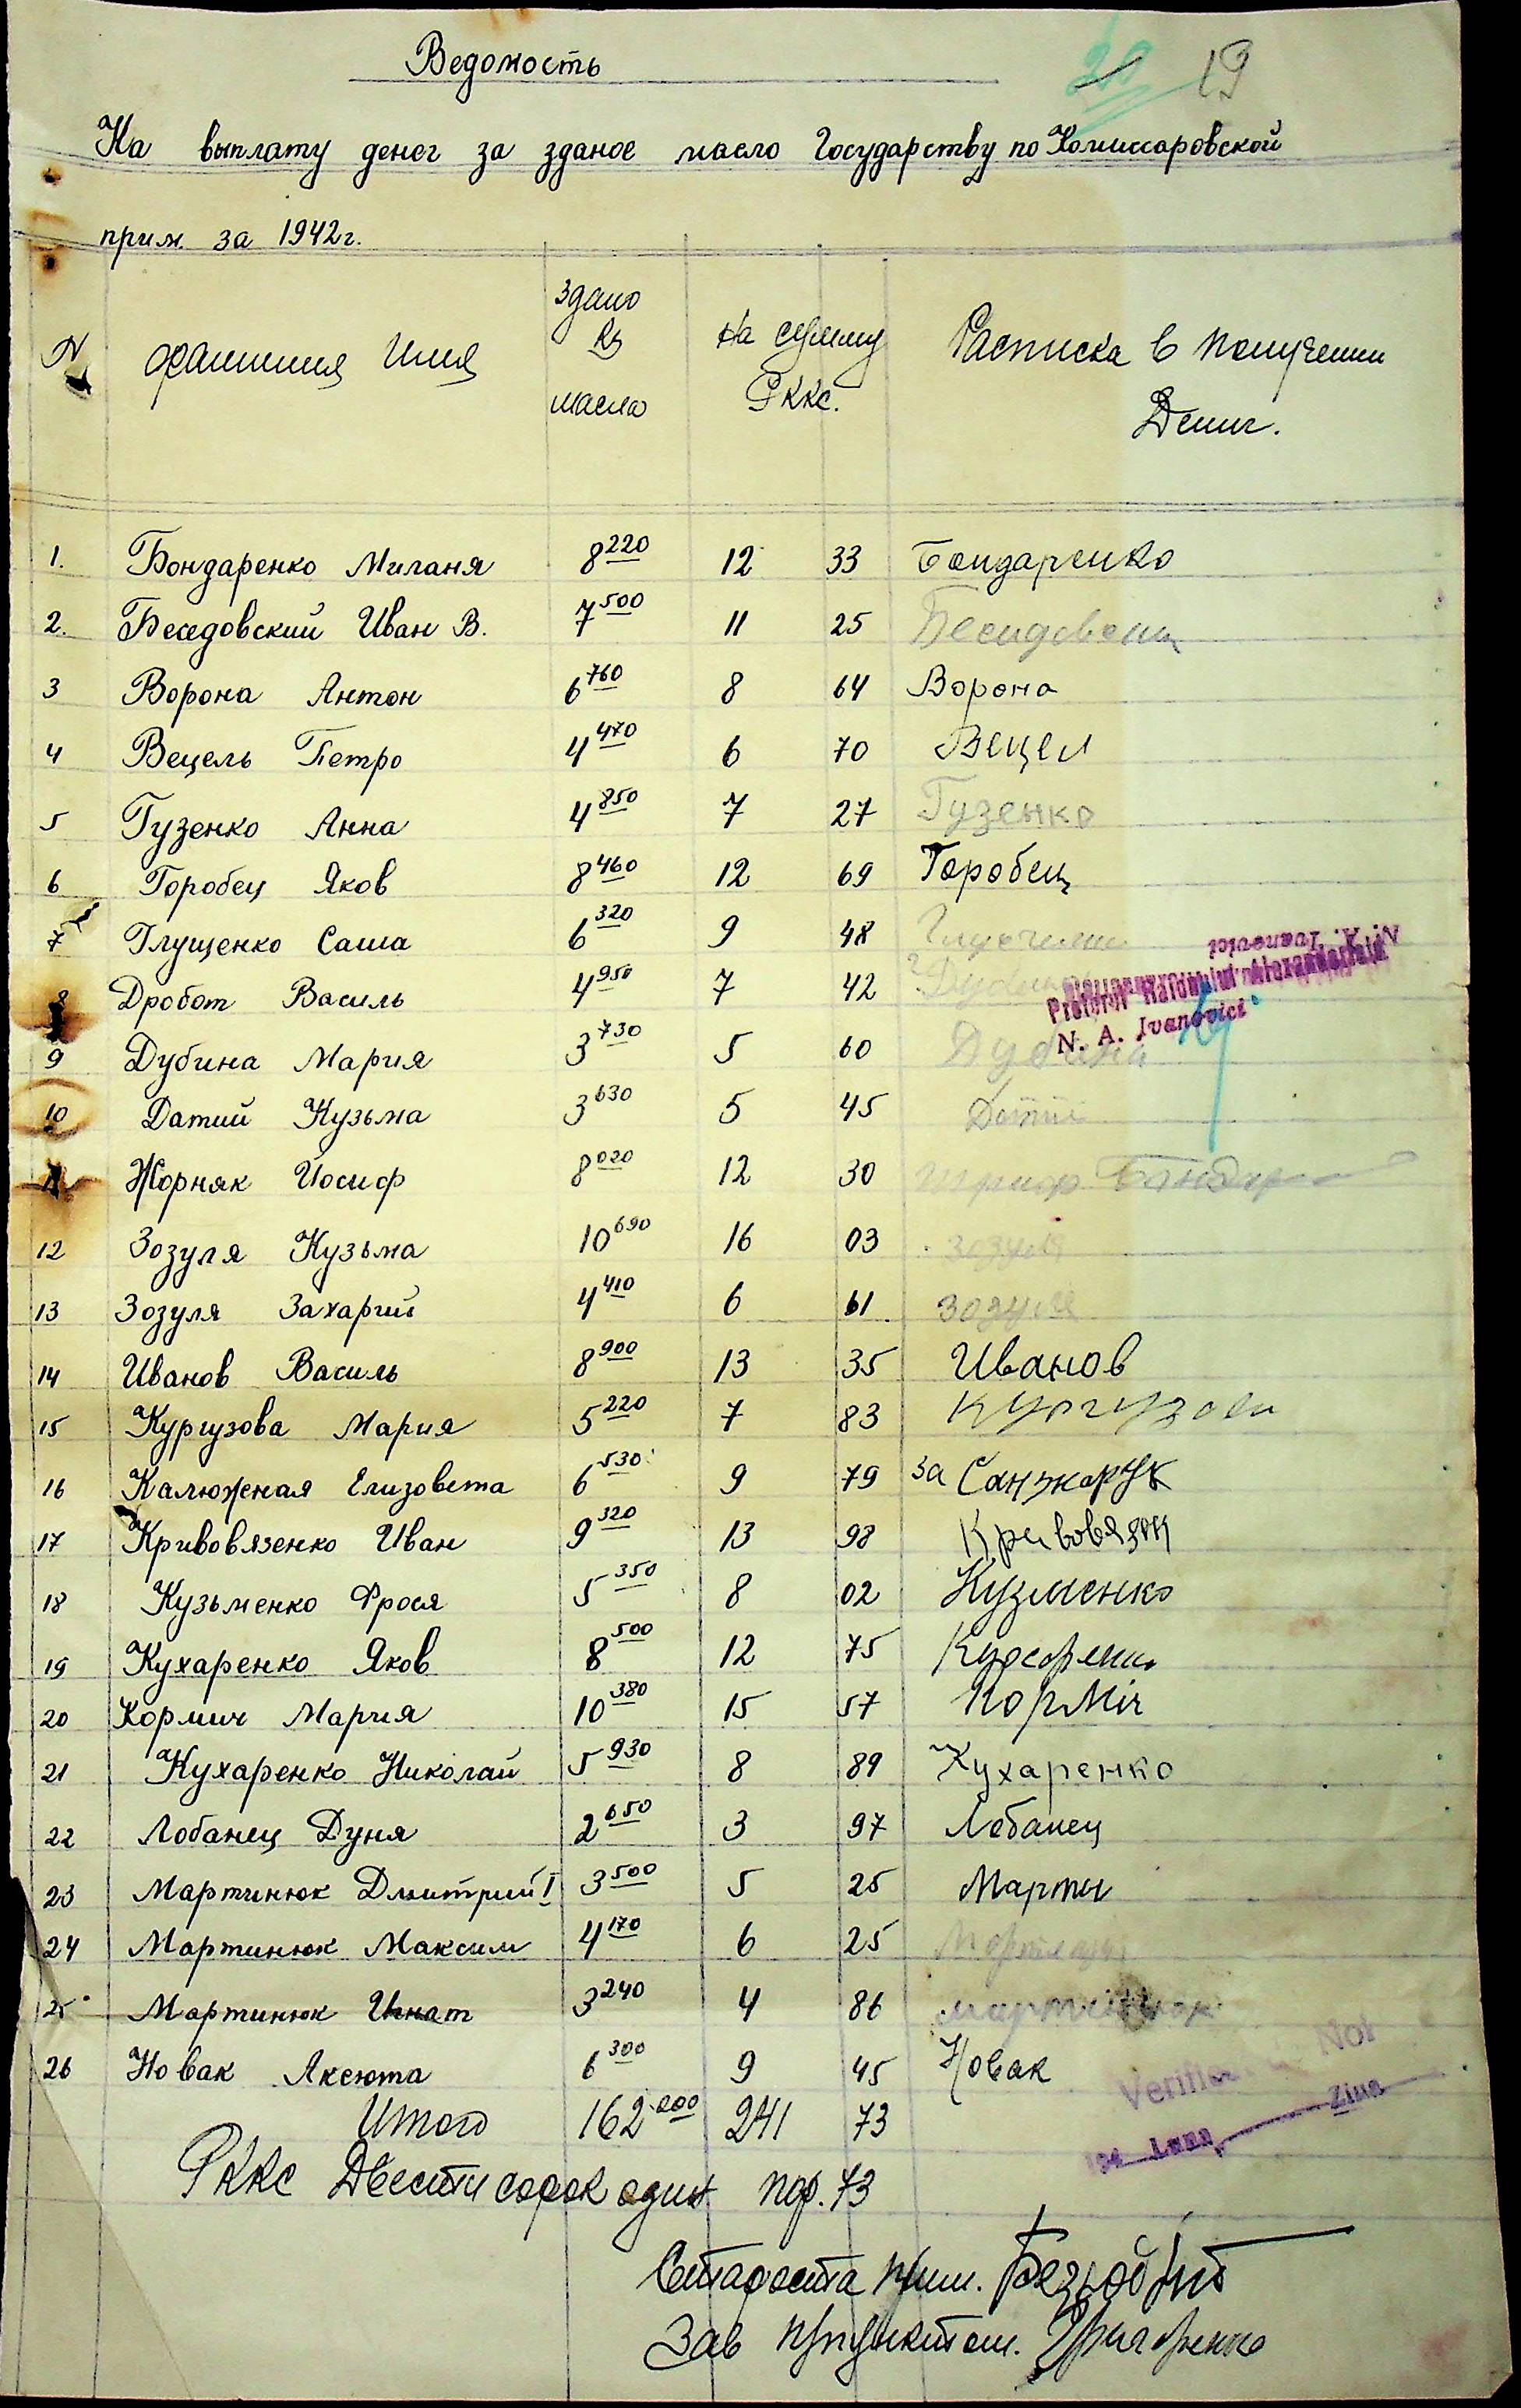 19
Ведомость
На выплату денег за зданое масло Государству по Комиссаровской
прим. за 1942г.
N фамилия Имя Здано Кг масла На сумму Рккс. Расписка в получении Дениг.
1. Бондаренко Миланя 8 220 12 33 Бондаренко
2. Беседовский Иван В. 7 500 11 25
3 Ворона Антон 6 760 8 64 Ворона
4 Вецель Петро 4 470 6 70 Вецел
5 Гузенко Анна 4 850 7 27 Гузенко
6 Горобец Яков 8 460 12 69 Горобец
7 Глущенко Саша 6 320 9 48
8 Дробот Василь 4 950 7 42
9 Дубина Мария 3 730 5 60 Дубина
10 Датий Кузьма 3 630 5 45
11 Жорняк Иосиф 8 020 12 30
12 Зозуля Кузьма 10 690 16 03 зозуля
13 Зозуля Захарий 4 410 6 61 зозуля
14 Иванов Василь 8 900 13 35 Иванов
15 Кургузова Мария 5 220 7 83
16 Калюжная Елизовета 6 530 9 79 за Санжарук
17 Кривовязенко Иван 9 320 13 98
18 Кузьменко Фрося 5 350 8 02 Кузменко
19 Кухаренко Яков 8 500 12 75
20 Кормич Мария 10 380 15 57 КорМіч
21 Кухаренко Николай 5 930 8 89 Кухаренко
22 Лобанец Дуня 2 650 3 97 Лобанец
23 Мартинюк Дмитрий I 3 500 5 25 Марты
24 Мартинюк Максим 4 170 6 25
25 Мартинюк Игнат 3 240 4 86
26 Новак Аксюта 6 300 9 45 Новак
Итого 162 200 241 73
Рккс Двести сорок один пф. 73
Староста прим.
Зав Григоренко
N. A. Ivanovici
Pretorul Raionului
N. A. Ivanovici
194 Luna Ziua